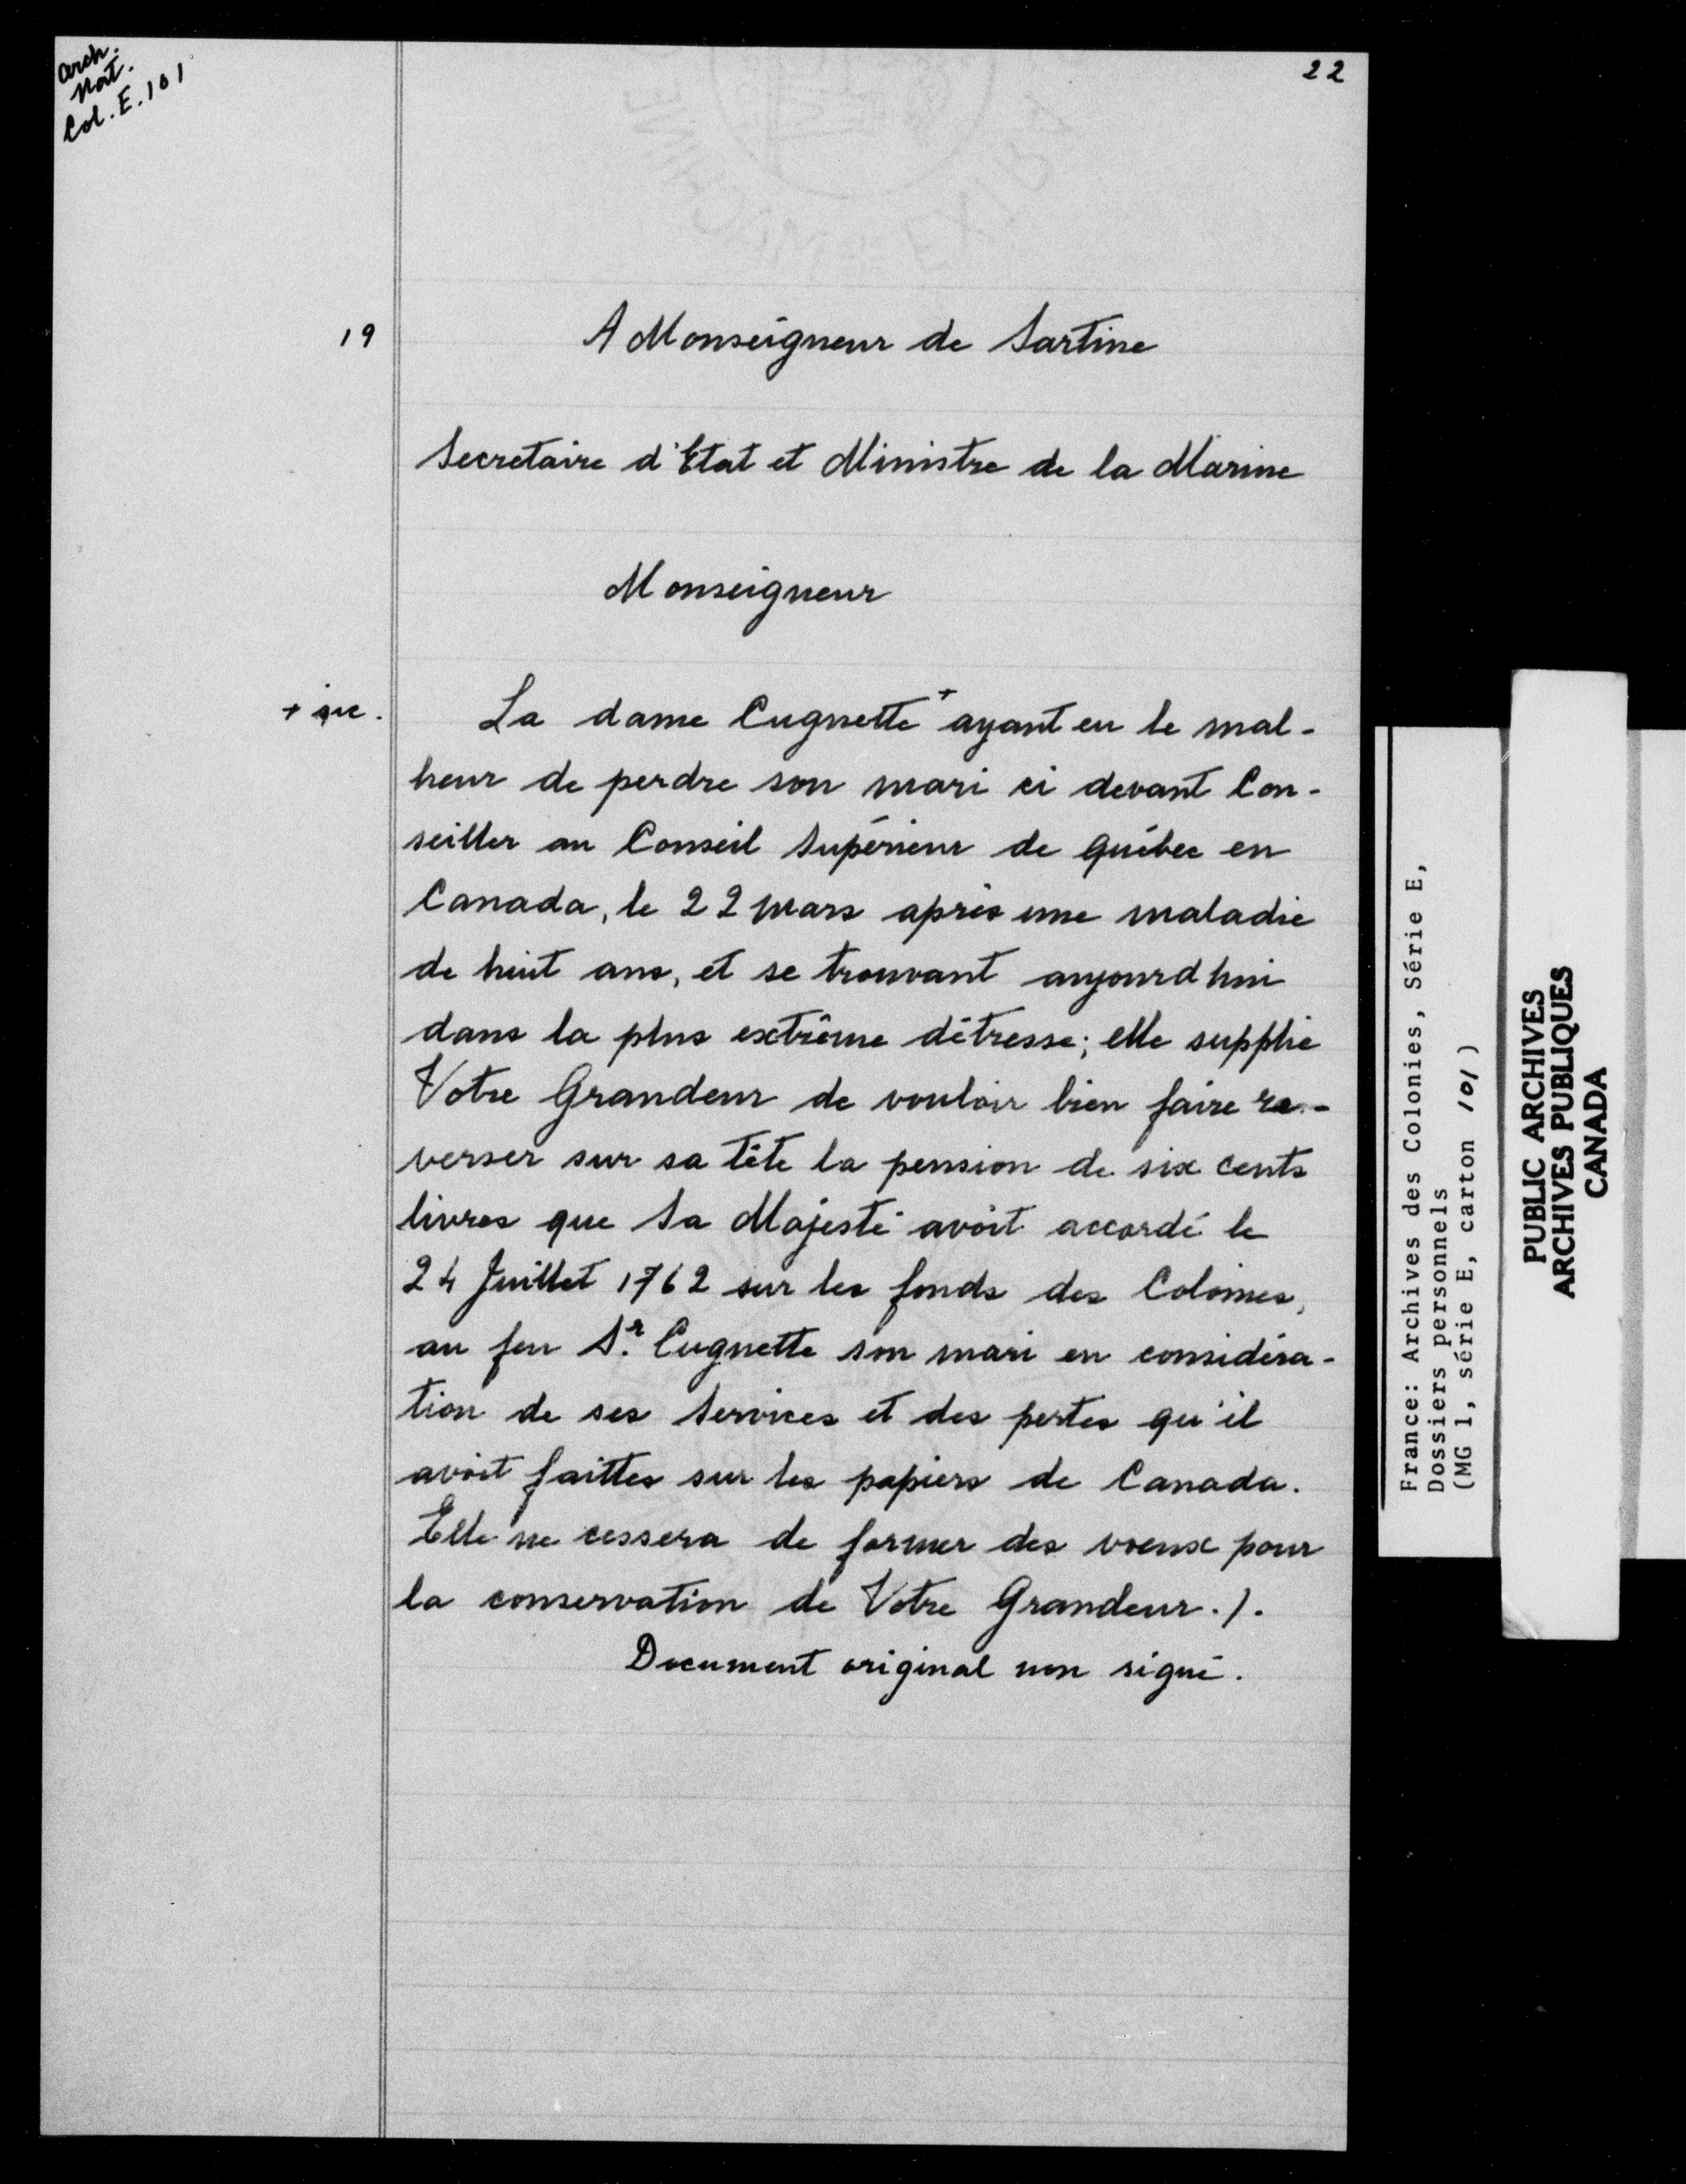 Arch.
Nat.
Col. E. 101
22
19
A Monseigneur de Sartine
Secretaire d'Etat et Ministre de la Marine
Monseigneur
+ sic.
La dame Cugnette + ayant eu le mal-
heur de perdre son mari ci devant Con-
seiller au Conseil Supérieur de Québec en
Canada, le 22 mars après une maladie
de huit ans, et se trouvant aujourd hui
dans la plus extrême détresse; elle supplie
Votre Grandeur de vouloir bien faire re-
verser sur sa tête la pension de six cents
livres que Sa Majesté avoit accordé le
24 Juillet 1762 sur les fonds des Colonies,
au feu Sr. Cugnette son mari en considéra-
tion de ses Services et des pertes qu'il
avoit faittes sur les papiers de Canada.
Elle ne cessera de former des voeux pour
la conservation de Votre Grandeur./.
Document original non signé.
France: Archives des Colonies, Série E,
Dossiers personnels
(MG 1, série E, carton 101)
PUBLIC ARCHIVES
ARCHIVES PUBLIQUES
CANADA